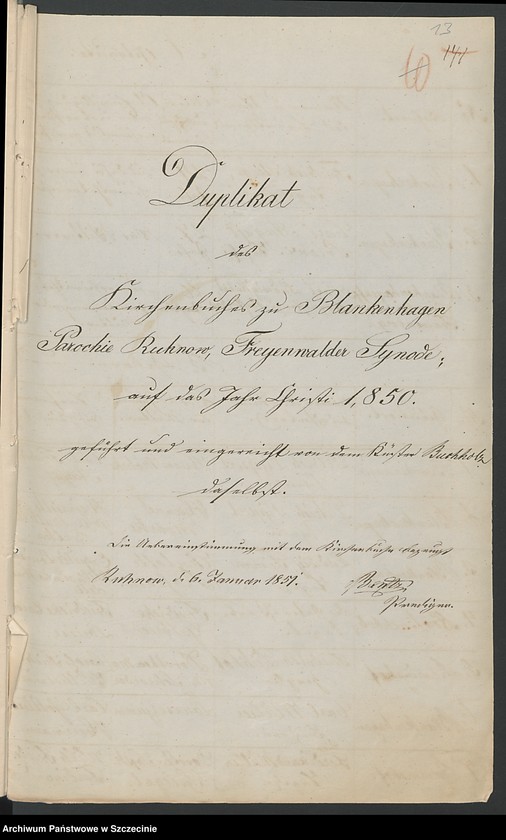 13
141
10
Duplikat
des
Kirchenbuches zu Blankenhagen
Parochie Ruhnow, Freyenwalder Synode,
auf das Jahr Christi 1,850.
geführt und eingereicht von dem Küster Buchholz
daselbst.
Die Uebereinstimmung mit dem Kirchenbuche bezeugt
Ruhnow, d. 6. Januar 1851.
Prediger.
Archiwum Państwowe w Szczecinie